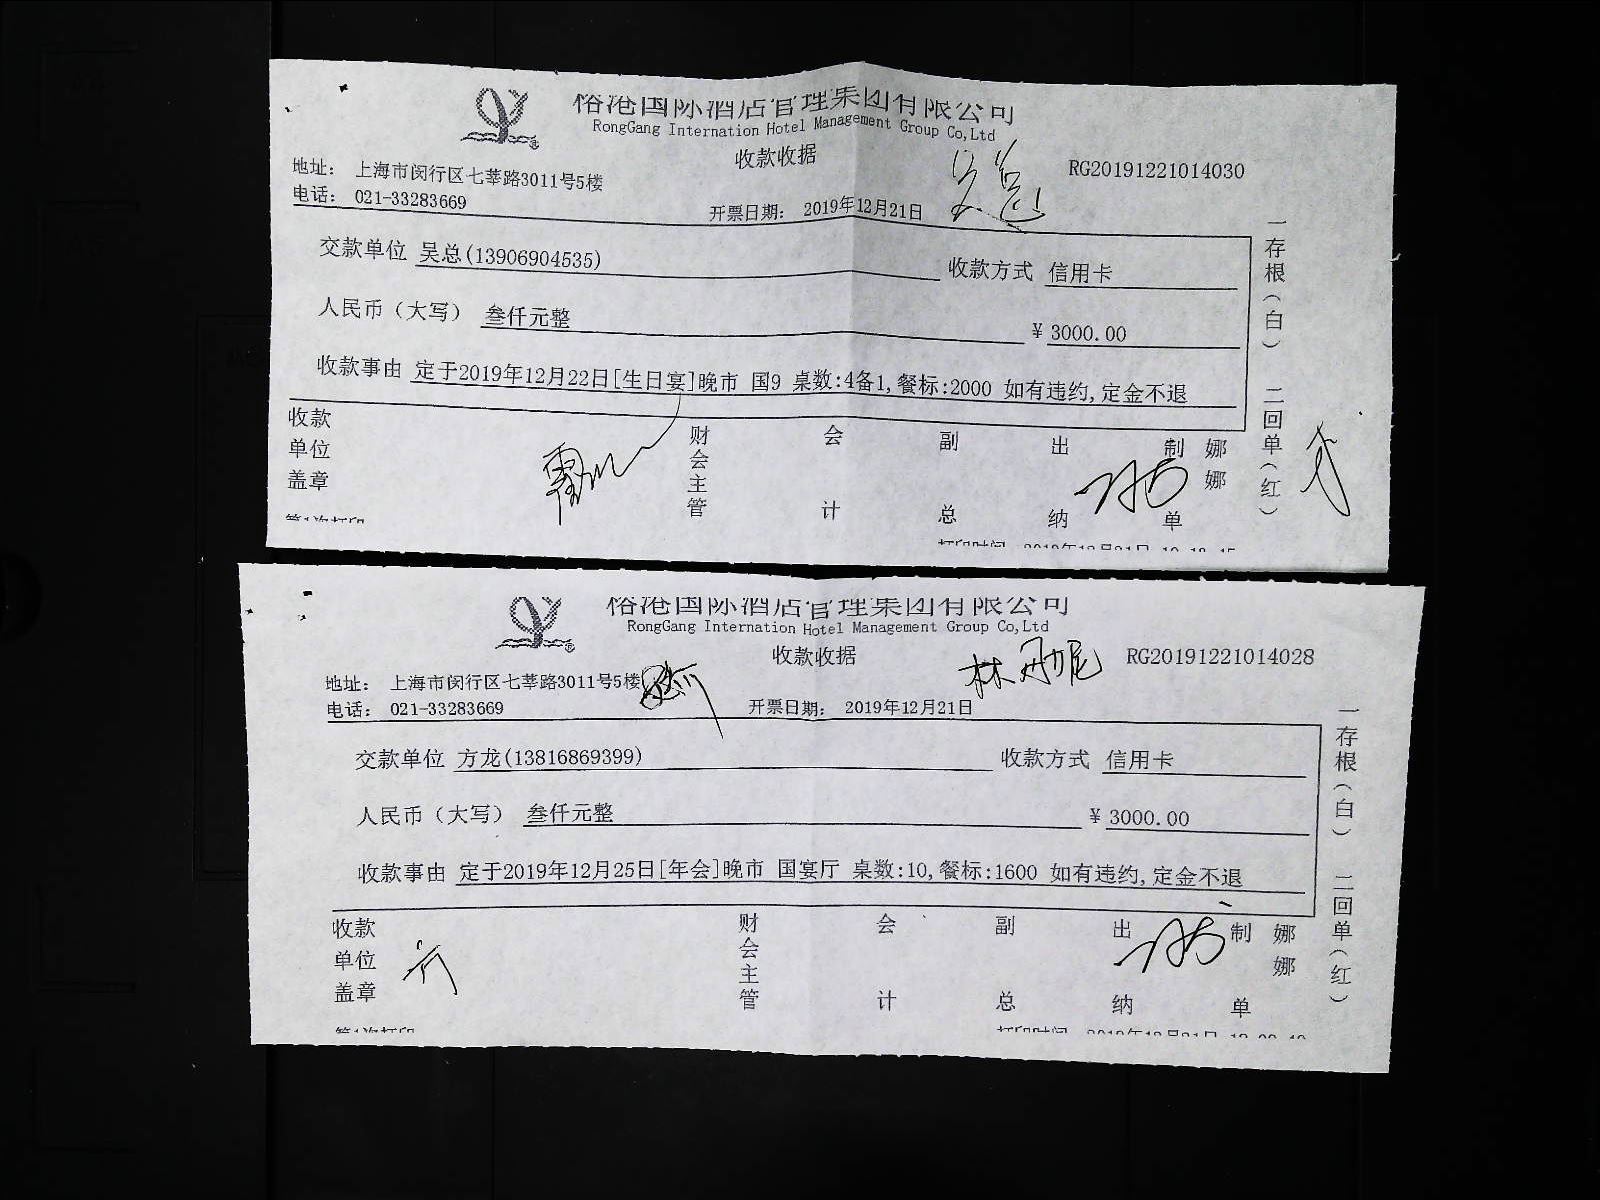 裕港国际酒店管理集团有限公司
RongGang Internation Hotel Management Group Co,Ltd
收款收据
RG20191221014030
地址： 上海市闵行区七莘路3011号5楼
电话： 021-33283669
开票日期： 2019年12月21日
吴总
交款单位 吴总(13906904535) 收款方式 信用卡
人民币（大写） 叁仟元整 ¥ 3000.00
收款事由 定于2019年12月22日[生日宴]晚市 国9 桌数:4备1,餐标:2000 如有违约,定金不退
收款单位盖章 财会主管 会计 副总 出纳 制单 娜娜
一存根（白） 二回单（红）
第1次打印
打印时间 2019年12月21日
裕港国际酒店管理集团有限公司
RongGang Internation Hotel Management Group Co,Ltd
收款收据
RG20191221014028
地址： 上海市闵行区七莘路3011号5楼
电话： 021-33283669
开票日期： 2019年12月21日
交款单位 方龙(13816869399) 收款方式 信用卡
人民币（大写） 叁仟元整 ¥ 3000.00
收款事由 定于2019年12月25日[年会]晚市 国宴厅 桌数:10,餐标:1600 如有违约,定金不退
收款单位盖章 财会主管 会计 副总 出纳 制单 娜娜
一存根（白） 二回单（红）
第1次打印
打印时间 2019年12月21日